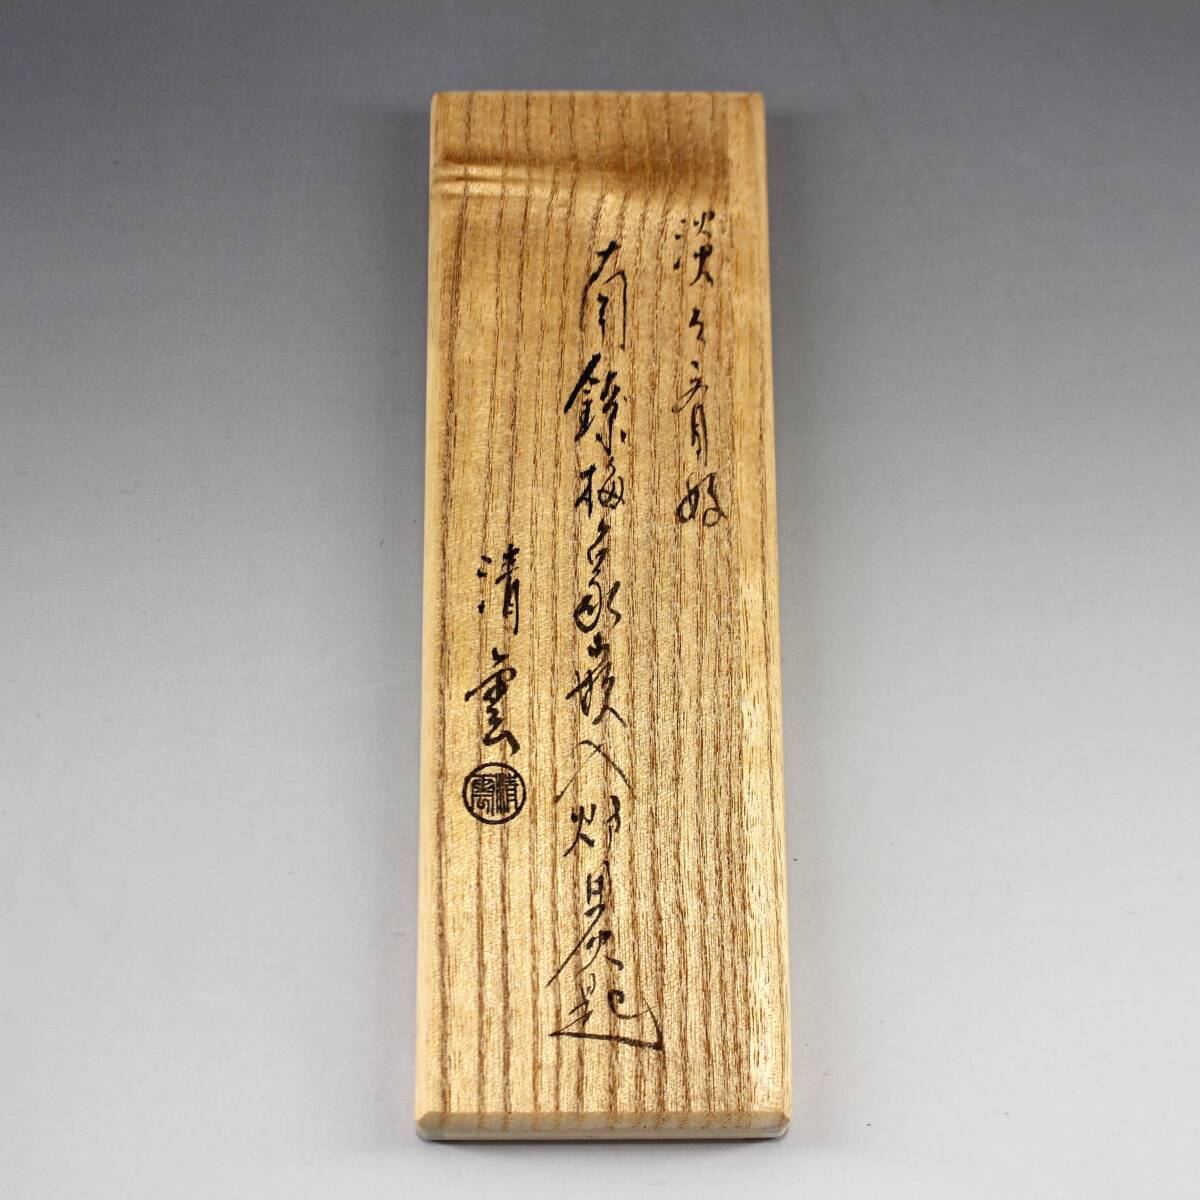 淡々斎好
南鐐梅象嵌入炉用火起
清雲
清雲